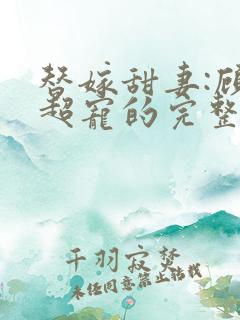 替嫁甜妻:顾
超宠的完整
千羽寂梦
未经同意禁止转载